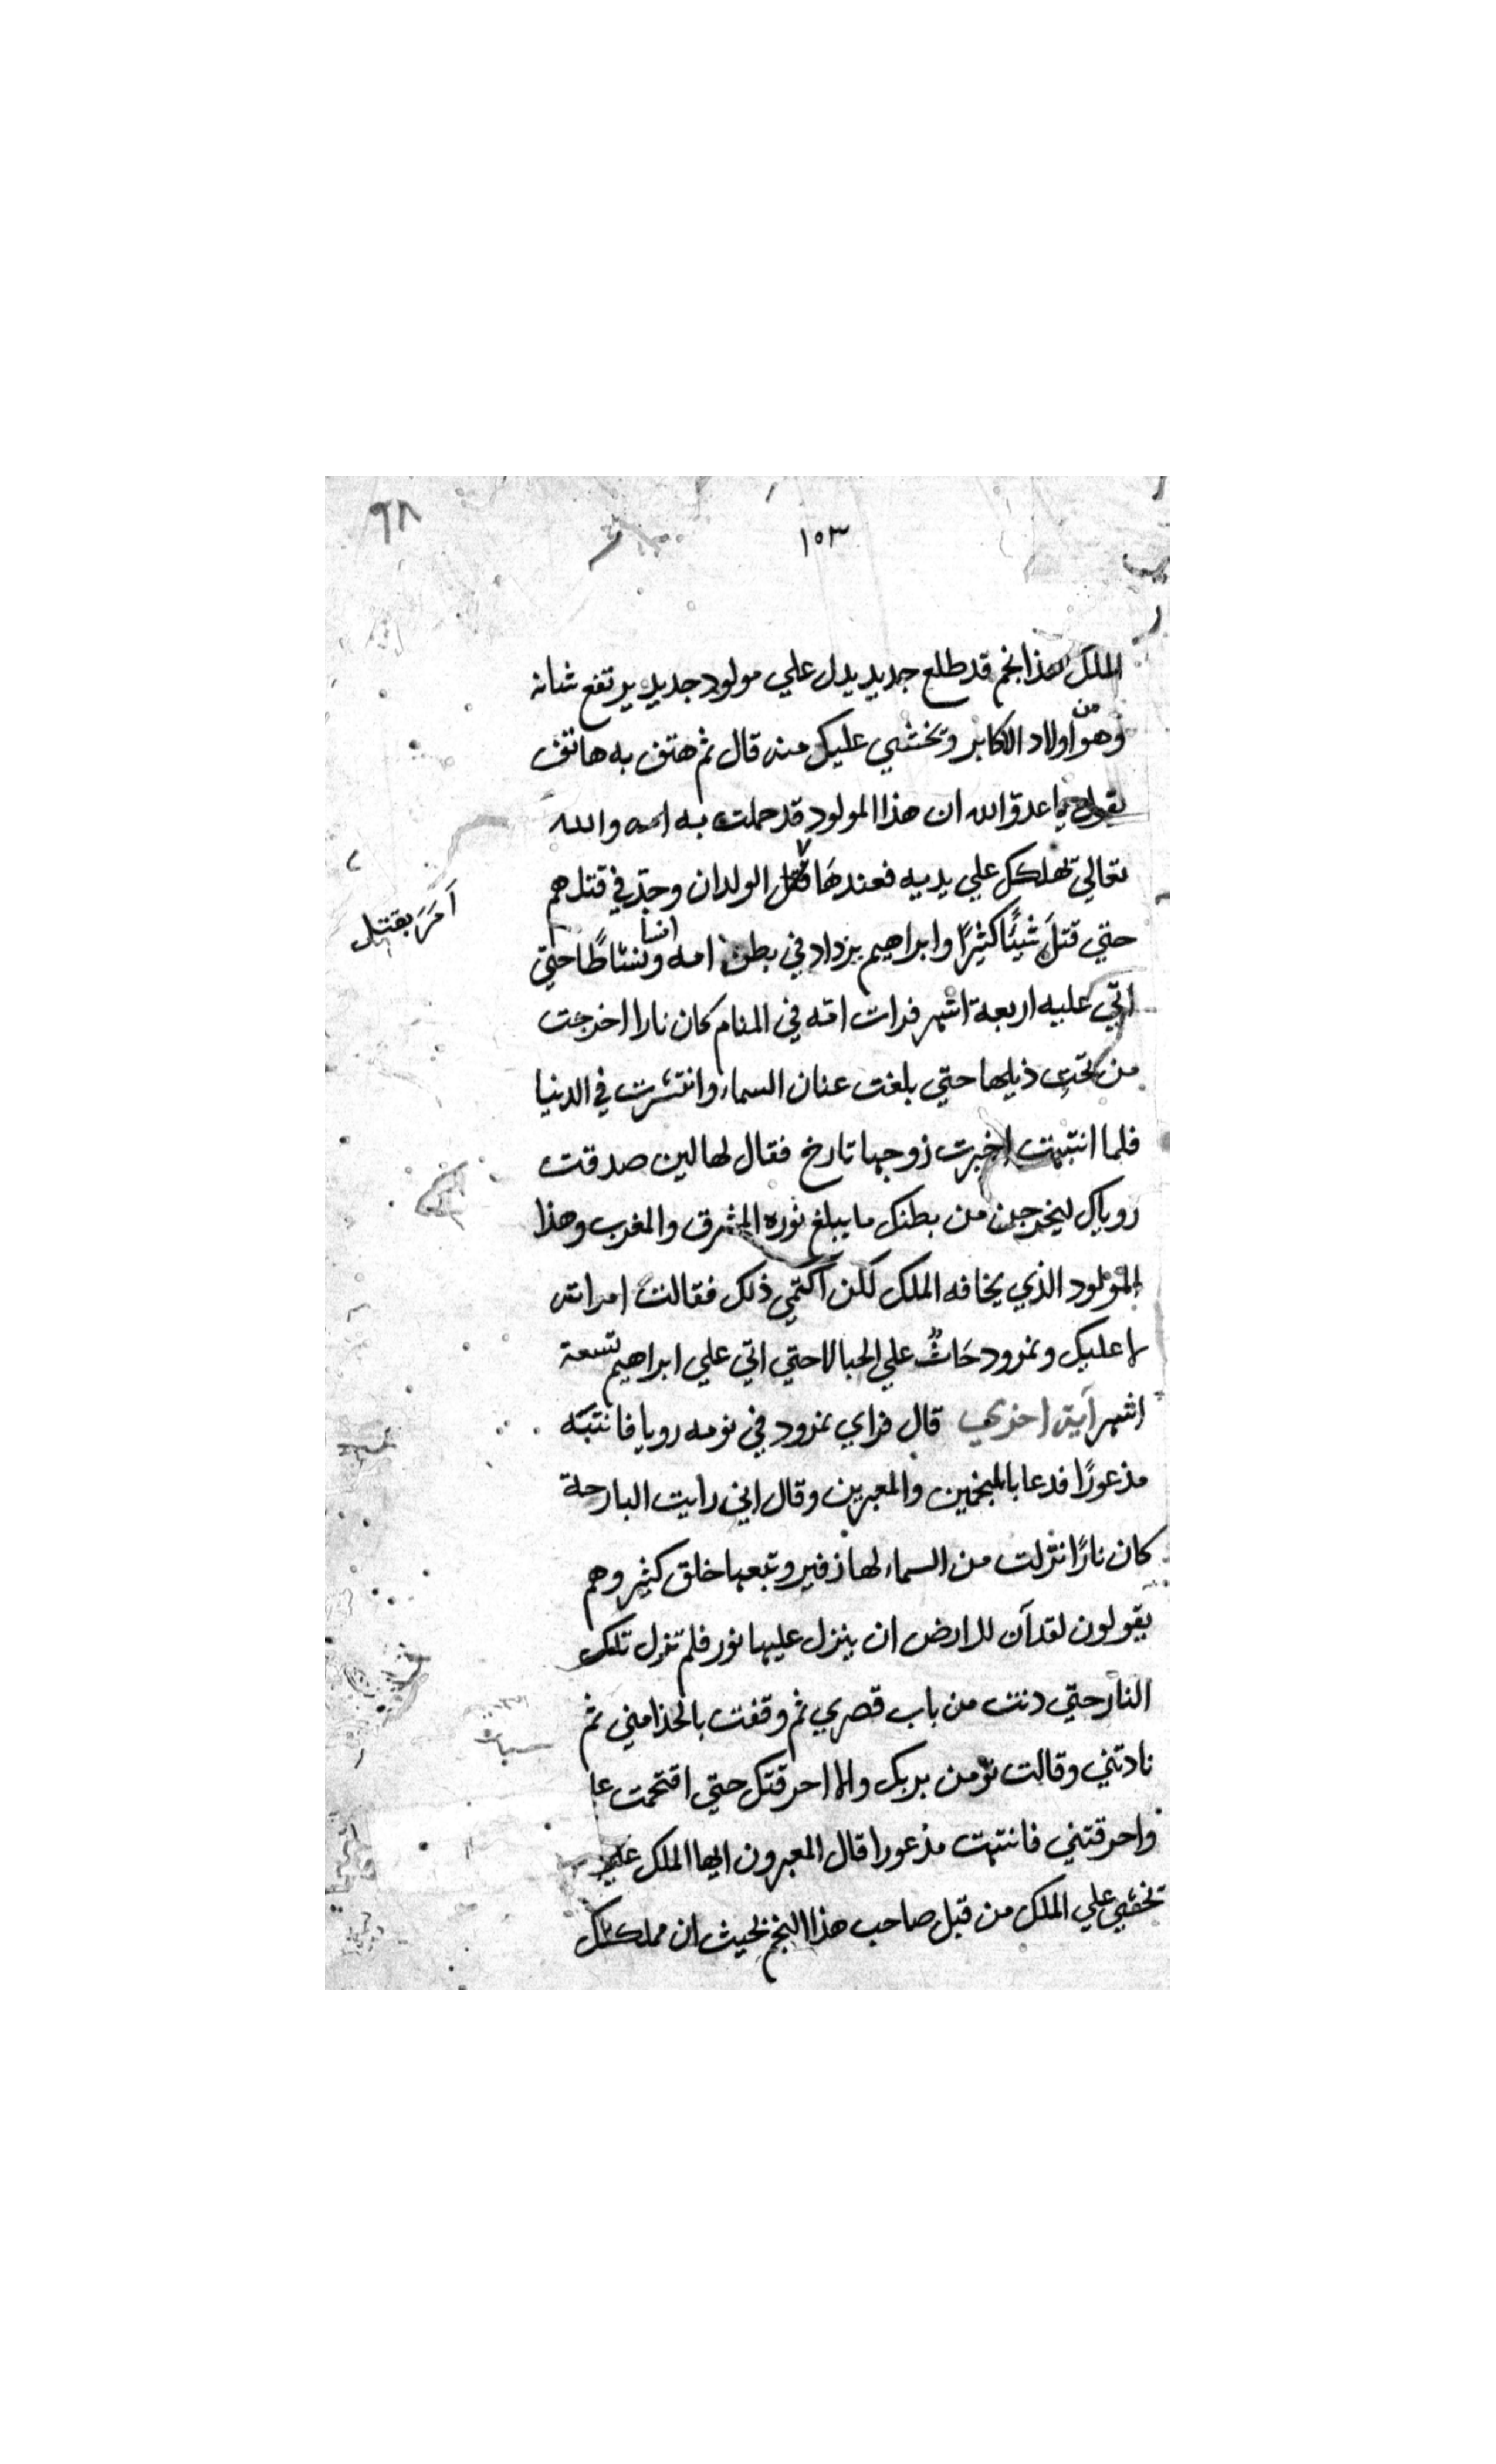 ٩٨
١٥٣
الملك هذا نجم قد طلع جديد يدل علي مولود جديد يرتفع شانه
وهو من اولاد الاكابر ونخشي عليك منه قال ثم هتف به هاتف
يقول يا عدوّ الله ان هذا المولود قد حملت به امه والله
تعالي يهلكك علي يديه فعندها قتل الولدان وجدّ في قتلهم
أمَرَ بقتل
حتي قتلَ شيئًا كثيرًا وابراهيم يزداد في بطن امه انسا ونشاطًا حتي
اتي عليه اربعة اشهر فرات امه في المنام كان نارا اخرجت
من تحتِ ذيلها حتي بلغت عنان السماء وانتشرت في الدنيا
فلما انتبهت اخبرت زوجها تارخ فقال لها لين صدقت
روياك ليخرجن من بطنك ما يبلغ نوره المشرق والمغرب وهذا
المولود الذي يخافه الملك لكن أكتمي ذلك فقالت امراته
لا عليك ونمرود حَاثٌ علي الحبالا حتي اتي علي ابراهيم تسعة
اشهر آية اخري قال فراي نمرود في نومه رويا فانتبَه
مذعورًا فدعا بالمنجمين والمعبرين وقال اني رايت البارحة
كان نارًا نزلت من السماء لها زفير وتبعها خلق كثير وهم
يقولون لقد آن للارض ان ينزل عليها نور فلم تزل تلك
النار حتي دنت من باب قصري ثم وقفت بالحذا مني ثم
نادتني وقالت تؤمن بربك والا احرقتك حتي اقتحمت عل
واحرقتني فانتبهت مذعورا قال المعبرون ايها الملك
نخشي علي الملك من قبل صاحب هذا النجم بحيث ان مملكتك